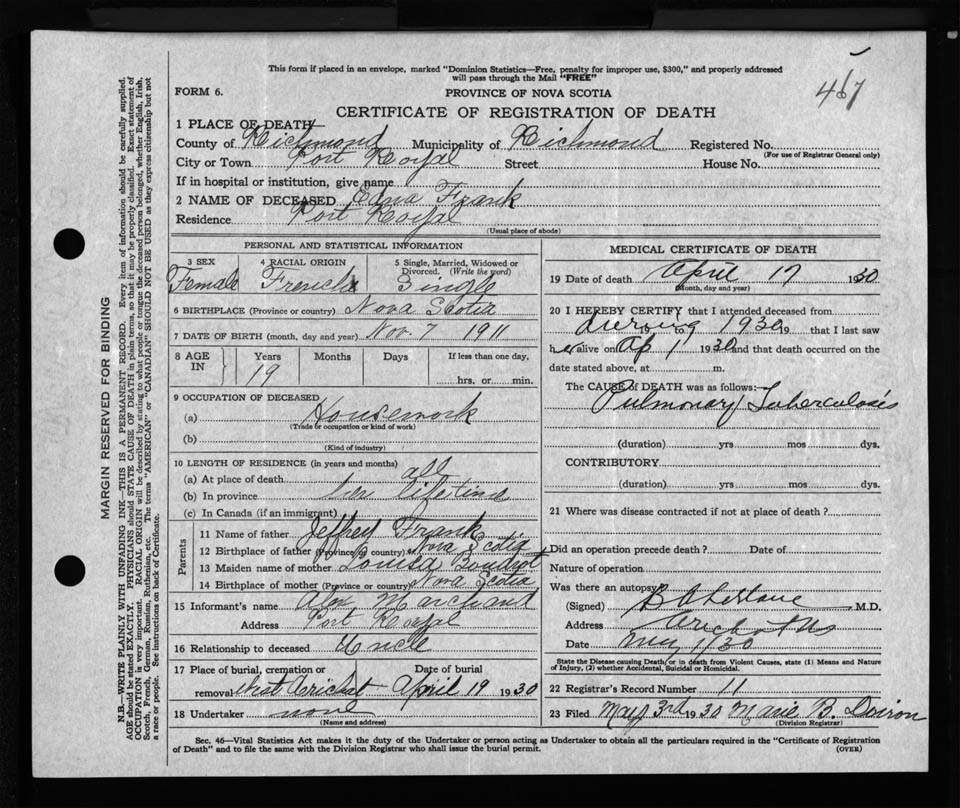 This form if placed in an envelope, marked "Dominion Statistics—Free, penalty for improper use, $300," and properly addressed
will pass through the Mail "FREE"
467
FORM 6. PROVINCE OF NOVA SCOTIA
CERTIFICATE OF REGISTRATION OF DEATH
1 PLACE OF DEATH—
County of Richmond Municipality of Richmond Registered No.
(For use of Registrar General only)
City or Town Port Royal Street House No.
If in hospital or institution, give name
2 NAME OF DECEASED Edna Frank
Residence Port Royal
(Usual place of abode)
PERSONAL AND STATISTICAL INFORMATION
3 SEX 4 RACIAL ORIGIN 5 Single, Married, Widowed or
Divorced. (Write the word)
Female French Single
6 BIRTHPLACE (Province or country) Nova Scotia
7 DATE OF BIRTH (month, day and year) Nov. 7 1911
8 AGE IN Years Months Days If less than one day,
19 hrs. or min.
9 OCCUPATION OF DECEASED
(a) Housework
(Trade or occupation or kind of work)
(b)
(Kind of industry)
10 LENGTH OF RESIDENCE (in years and months)
(a) At place of death all
(b) In province her lifetime
(c) In Canada (if an immigrant)
Parents
11 Name of father Jeffrey Frank
12 Birthplace of father (Province or country) Nova Scotia
13 Maiden name of mother Louisa Boudrot
14 Birthplace of mother (Province or country) Nova Scotia
15 Informant's name Marchand
Address Port Royal
16 Relationship to deceased Uncle
17 Place of burial, cremation or Date of burial
removal West Arichat April 19 1930
18 Undertaker none
(Name and address)
MEDICAL CERTIFICATE OF DEATH
19 Date of death April 17 1930
(Month, day and year)
20 I HEREBY CERTIFY that I attended deceased from
during 1930 19 that I last saw
her alive on Ap 1 1930 and that death occurred on the
date stated above, at m.
The CAUSE of DEATH was as follows:
Pulmonary Tuberculosis
(duration) yrs mos dys.
CONTRIBUTORY
(duration) yrs. mos. dys.
21 Where was disease contracted if not at place of death?
Did an operation precede death? Date of
Nature of operation
Was there an autopsy
(Signed) M.D.
Address Arichat NS
Date May 1/30
State the Disease causing Death, or in death from Violent Causes, state (1) Means and Nature
of Injury, (2) whether Accidental, Suicidal or Homicidal.
22 Registrar's Record Number 11
23 Filed May 3rd 1930 Marie B. Doiron
(Division Registrar)
Sec. 46—Vital Statistics Act makes it the duty of the Undertaker or person acting as Undertaker to obtain all the particulars required in the "Certificate of Registration
of Death" and to file the same with the Division Registrar who shall issue the burial permit. (OVER)
MARGIN RESERVED FOR BINDING
N.B.—WRITE PLAINLY WITH UNFADING INK—THIS IS A PERMANENT RECORD. Every item of information should be carefully supplied.
AGE should be stated EXACTLY. PHYSICIANS should STATE CAUSE OF DEATH in plain terms, so that it may be properly classified. Exact statement of
OCCUPATION is very important. RACIAL ORIGIN will be described by stating to what people or tongue the deceased person belonged, whether English, Irish,
Scotch, French, German, Russian, Ruthenian, etc. The terms "AMERICAN" or "CANADIAN" SHOULD NOT BE USED as they express citizenship but not
a race or people. See instructions on back of Certificate.